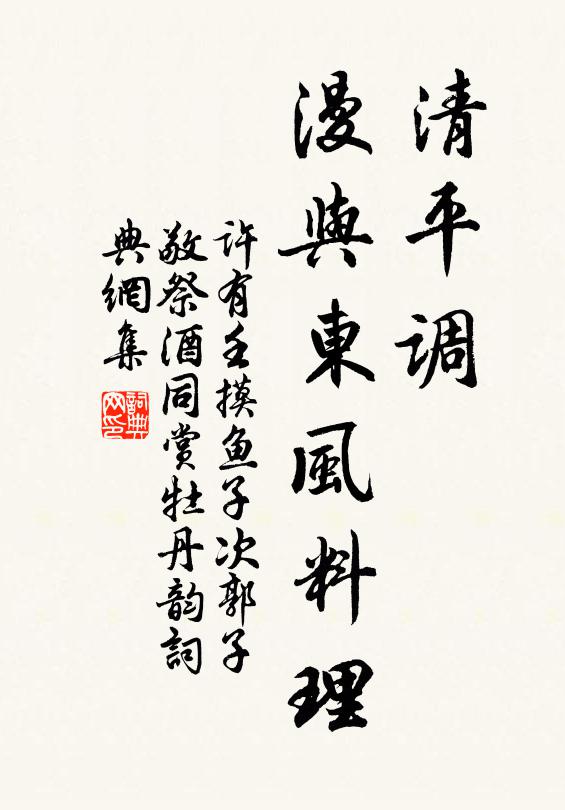 清平調
漫與東風料理
許有壬摸魚子次郭子
敬祭酒同賞牡丹韵詞
典網集
詞典
网印